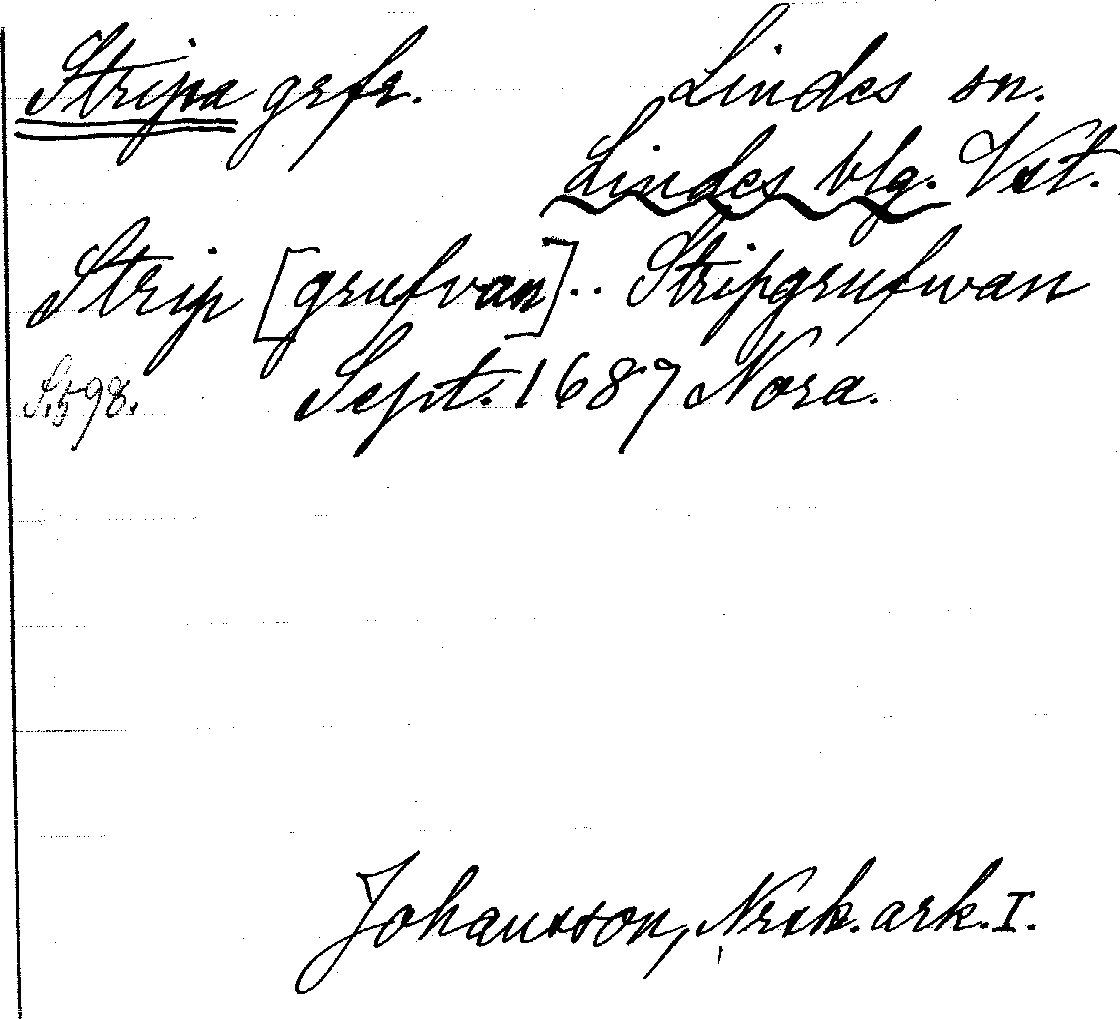 Stripa grfr. Lindes sn.
Lindes blg. Vst.
Strip [grufvan].. Stripgrufwan
S. 598. Sept. 1687 Nora.
Johansson, Nrsk. ark. I.